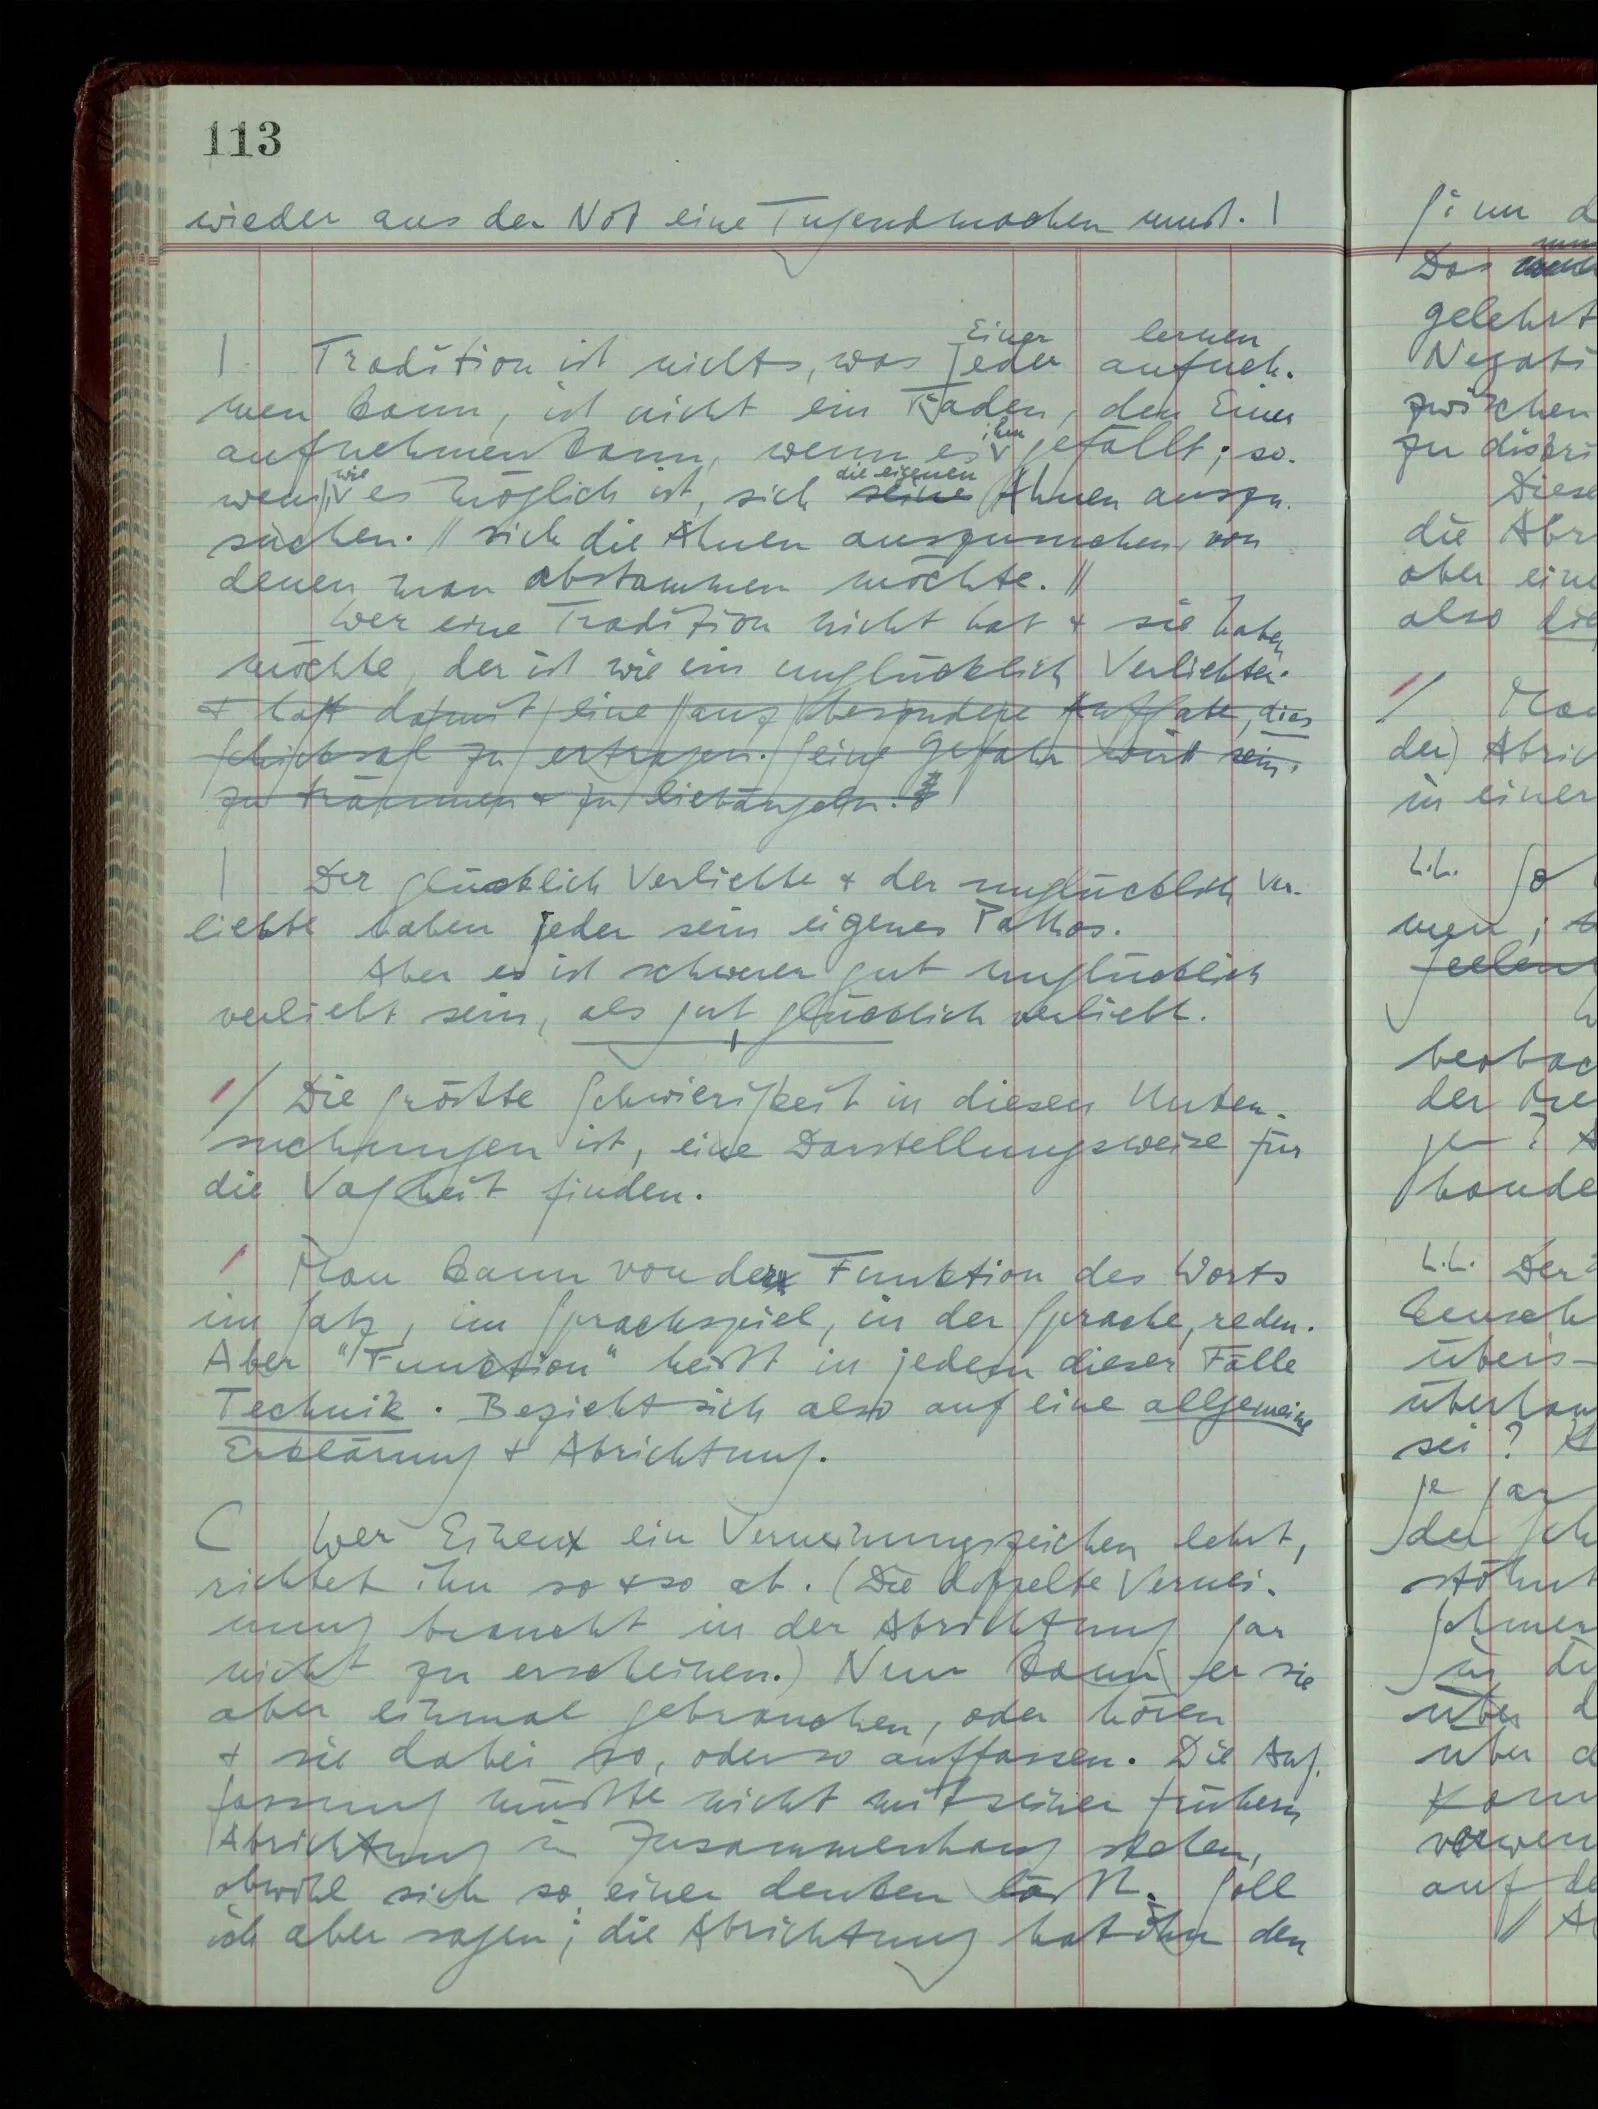 113
wieder aus der Not eine Tugend machen muß. |
Einer lernen
| Tradition ist nichts, was jeder aufneh-
men kann, ist nicht ein Faden, den Einer
ihm
aufnehmen kann, wenn es gefällt; so-
wie die eigenen
wenig es möglich ist, sich seine Ahnen auszu-
suchen. // sich die Ahnen auszusuchen, von
denen man abstammen möchte. //
Wer eine Tradition nicht hat & sie haben
möchte, der ist wie ein unglücklich Verliebter.
& hat damit eine ganz besondere Aufgabe, dies
Schicksal zu ertragen. Seine Gefahr wird sein,
zu träumen & zu liebäugeln.
| Der glücklich Verliebte & der unglücklich Ver-
liebte haben jeder sein eigenes Pathos.
Aber es ist schwerer gut unglücklich
verliebt sein, als gut glücklich verliebt.
/ Die größte Schwierigkeit in diesen Unter-
suchungen ist, eine Darstellungsweise für
die Vagheit finden.
/ Man kann von der Funktion des Worts
im Satz, im Sprachspiel, in der Sprache, reden.
Aber "Function" heißt in jedem dieser Fälle
Technik. Bezieht sich also auf eine allgemeine
Erklärung & Abrichtung.
C Wer Einen ein Verneinungszeichen lehrt,
richtet ihn so & so ab. (Die doppelte Vernei-
nung braucht in der Abrichtung gar
nicht zu erscheinen.) Nun kann er sie
aber einmal gebrauchen, oder hören
& sie dabei so, oder so auffassen. Die Auf-
fassung müßte nicht mit seiner frühern
Abrichtung in Zusammenhang stehen,
obwohl sich so einer denken läßt. Soll
ich aber sagen; die Abrichtung hat ihn den
Das
gelehrt
Negati
zwischen
zu diskri
Diese
die Abr
aber eine
also die
/ Man
der Abrich
in einer
L.L. So
men;
beobac
L.L. Der
sei?
je gar
über d
auf de